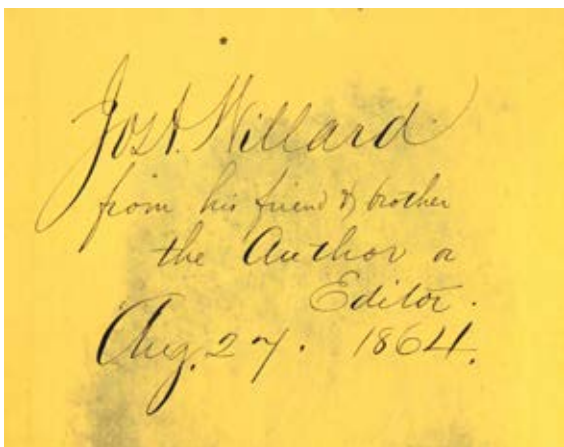 Jos A. Willard
from his friend & brother
the Author or
Editor.
Aug. 27. 1864.